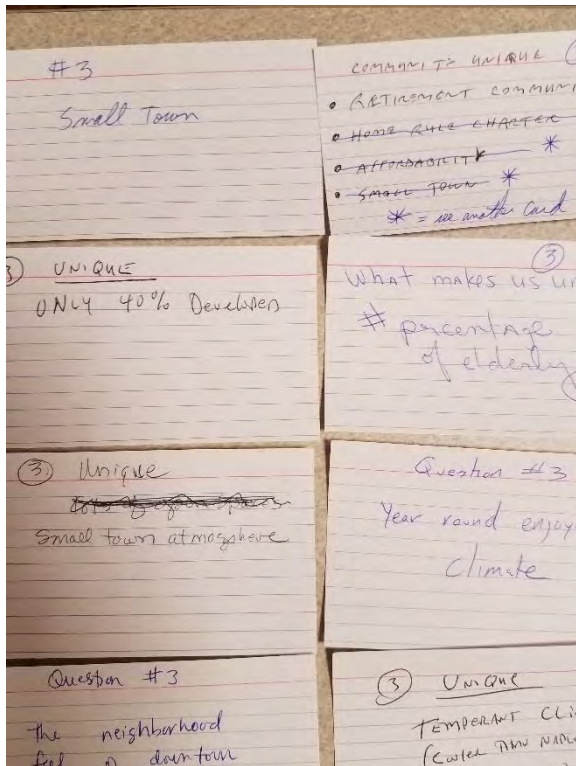 #3
Small Town
COMMUNITY UNIQUE
• RETIREMENT COMMUNI
• HOME RULE CHARTER
• AFFORDABILITY *
• SMALL TOWN *
* = see another card
3 UNIQUE
ONLY 40% Developed
3
What makes us un
# percentage
of elderly
3. Unique
Lots of open spaces
Small town atmosphere
Question #3
Year round enjoy
Climate
Question #3
The neighborhood
feel a downtown
3 UNIQUE
TEMPERANT CLI
(COOLER THAN NAPL